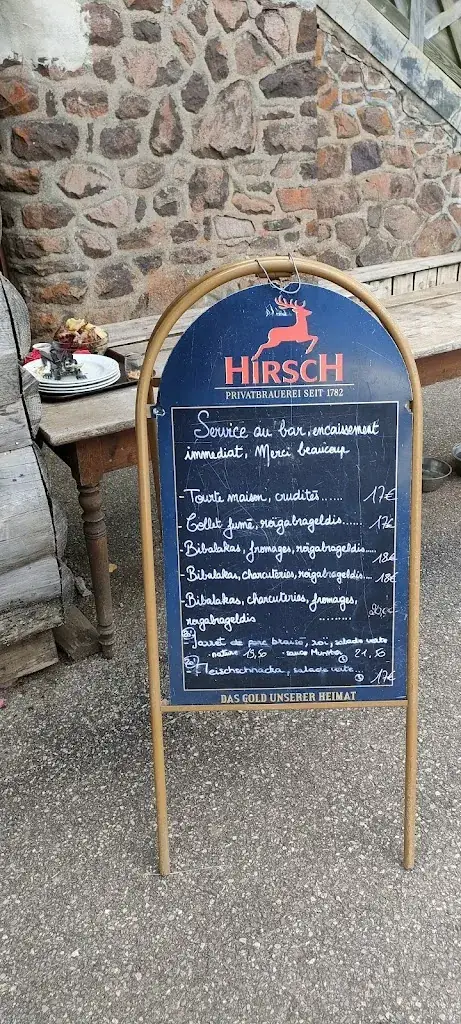 HIRSCH
PRIVATBRAUEREI SEIT 1782
Service au bar, encaissement
immediat, Merci beaucoup
- Tourte maison, crudités...... 17€
- Collet fumé, roïgabrageldis..... 17€
- Bibalakas, fromages, roïgabrageldis.... 18€
- Bibalakas, charcuteries, roigabrageldis.... 18€
- Bibalakas, charcuteries, fromages,
roigabrageldis ........ 20,00€
Jarret de porc braisé, roï, salade verte
- nature 19,50 - sauce Munster 21,50
- Fleischschnacka, salade verte... 17€
DAS GOLD UNSERER HEIMAT